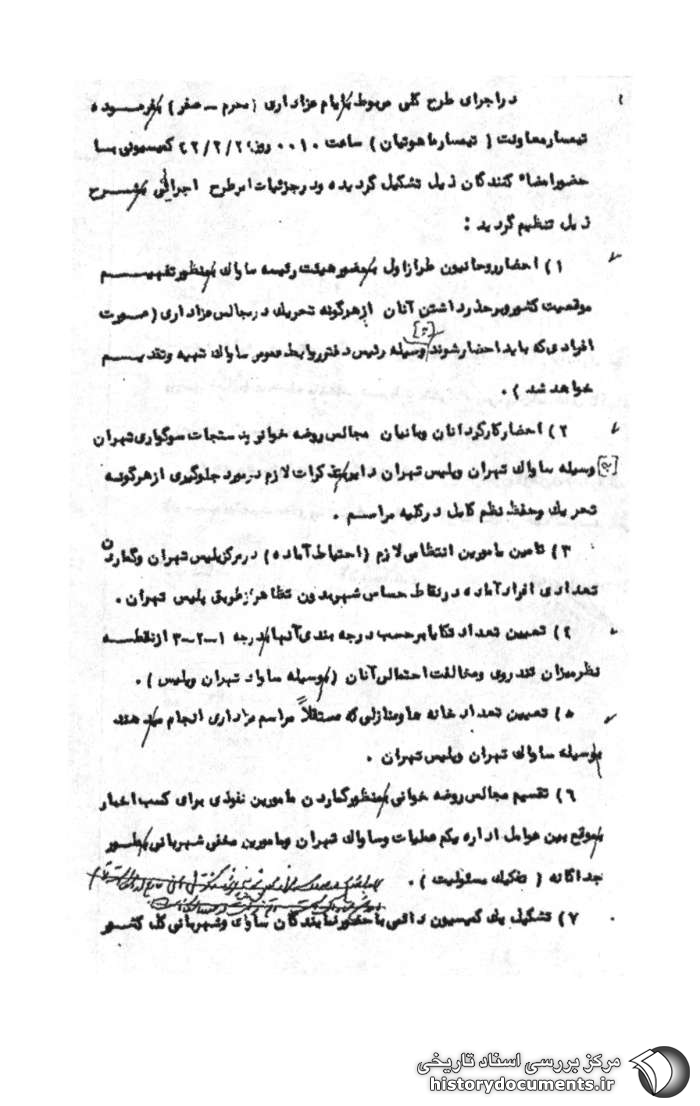 در اجرای طرح کلی مربوط بایام عزاداری (محرم - صفر) بفرموده
تیمسار معاونت (تیمسار ماهوتیان) ساعت ۰۰۱۰ روز کمیسیونی با
حضور امضاء کنندگان ذیل تشکیل گردیده و در جزئیات امر طرح اجرائی بشرح
ذیل تنظیم گردید :
۱) احضار روحانیون طراز اول بحضور هیئت رئیسه ساواک بمنظور تفهیم
موقعیت کشور و برحذر داشتن آنان از هرگونه تحریک در مجالس عزاداری (صورت
افرادی که باید احضار شوند [به] وسیله رئیس دفتر روابط عمومی ساواک تهیه و تقدیم
خواهد شد ) .
۲) احضار کارگردانان وبانیان مجالس روضه خوانی و دستجات سوگواری تهران
[به] وسیله ساواک تهران وپلیس تهران دایر بتذکرات لازم در مورد جلوگیری از هرگونه
تحریک وحفظ نظم کامل در کلیه مراسم .
۳) تامین مامورین انتظامی لازم (احتیاط آماده) در مرکز پلیس تهران وگماردن
تعدادی افراد آماده در نقاط حساس شهر بدون تظاهر از طریق پلیس تهران .
۴) تعیین تعداد تکایا بر حسب درجه بندی آنها بدرجه ۱-۲-۳ از نقطه
نظر میزان تندروی ومخالفت احتمالی آنان (بوسیله ساواک تهران وپلیس) .
۵) تعیین تعداد خانه ها ومنازلی که مستقلاً مراسم عزاداری انجام میدهند
بوسیله ساواک تهران وپلیس تهران .
۶) تقسیم مجالس روضه خوانی بمنظور گماردن مامورین نفوذی برای کسب اخبار
بموقع بین عوامل اداره یکم عملیات وساواک تهران ومامورین مخفی شهربانی بطور
جداگانه ( تفکیک مسئولیت ) .
۷) تشکیل یک کمیسیون دائمی با حضور نمایندگان ساواک وشهربانی کل کشور
مرکز بررسی اسناد تاریخی
historydocuments.ir